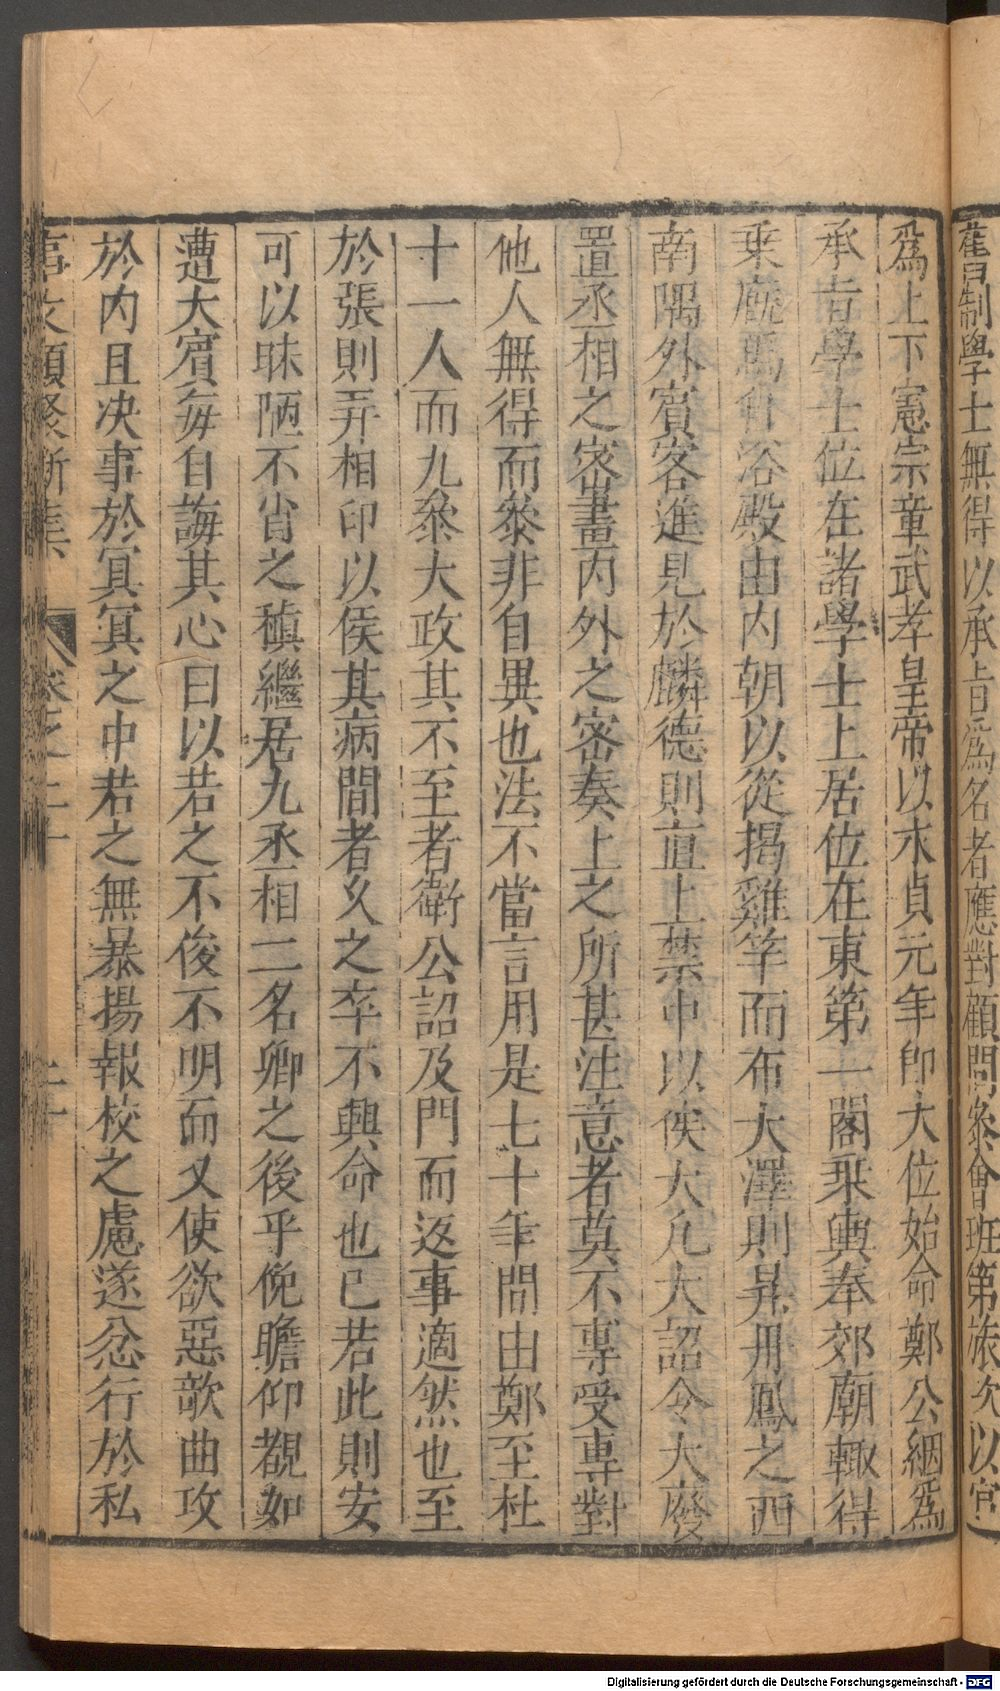 舊制學士無得以承旨爲名者應對顧問參會班第旅次以官
爲上下憲宗章武孝皇帝以永貞元年即大位始命鄭公絪爲
承旨學士位在諸學士上居位在東第一閣乘輿奉郊廟輒得
乘廐馬自浴殿由內朝以從揭雞竿而布大澤則昇丹鳳之西
南隅外賓客進見於麟德則直上禁中以俟大凡大詔令大廢
置丞相之密畫內外之密奏上之所甚注意者莫不專受專對
他人無得而叅非自異也法不當言用是七十年間由鄭至杜
十一人而九叅大政其不至者衛公詔及門而返事適然也至
於張則弄相印以俟其病間者久之卒不興命也已若此則安
可以昧陋不肖之稹繼居九丞相二名卿之後乎俛瞻仰覩如
遭大賓每自誨其心曰以若之不俊不明而又使欲惡歌曲攻
於內且决事於冥冥之中若之無暴揚報校之慮遂忿行於私
卷之二十
二十
Digitalisierung gefördert durch die Deutsche Forschungsgemeinschaft - DFG